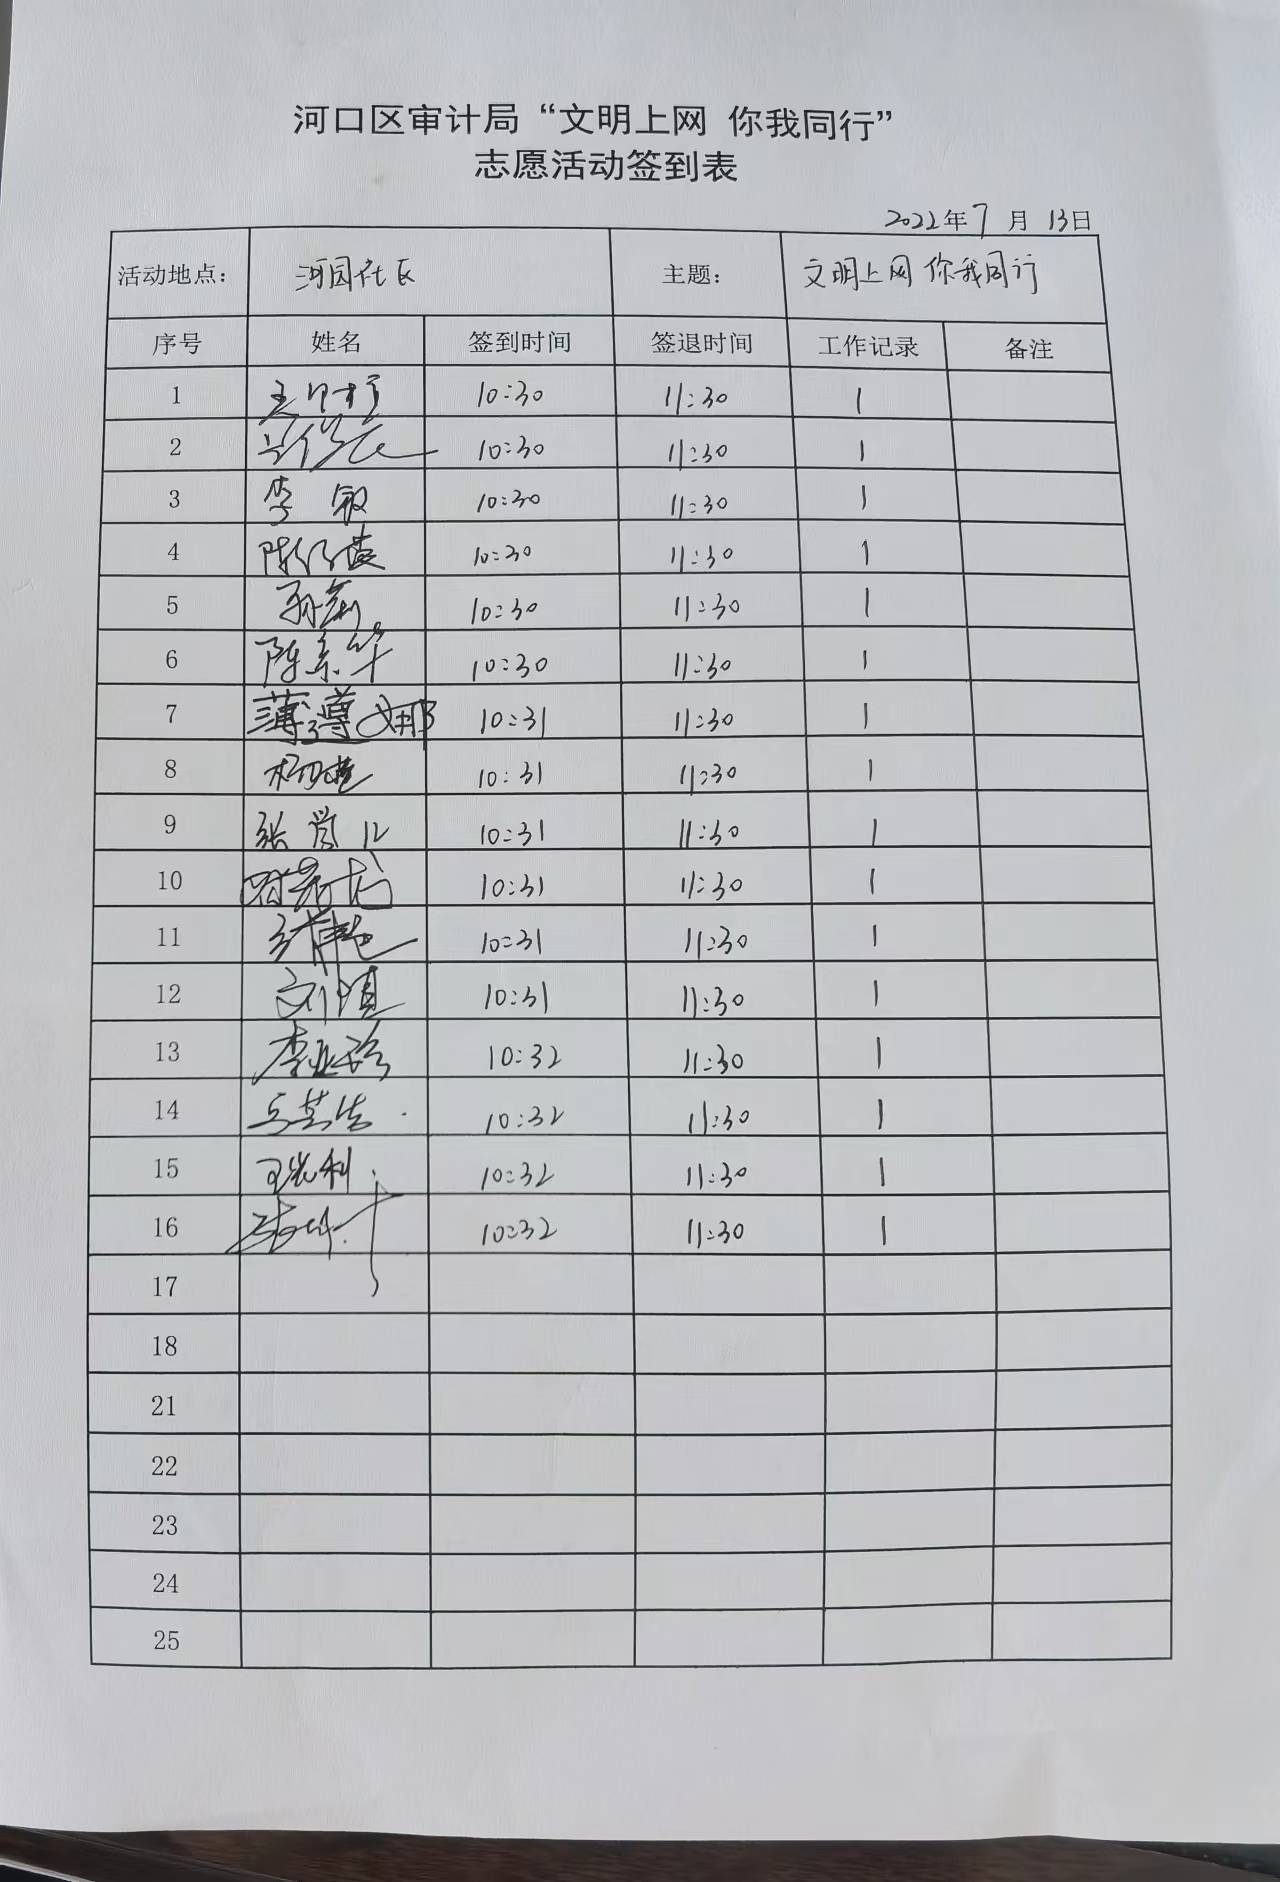 河口区审计局“文明上网 你我同行”
志愿活动签到表
2022年7月13日
活动地点： 河园社区 主题： 文明上网 你我同行
序号 姓名 签到时间 签退时间 工作记录 备注
1 10:30 11:30 1
2 10:30 11:30 1
3 李敏 10:30 11:30 1
4 10:30 11:30 1
5 孙莉 10:30 11:30 1
6 陈素华 10:30 11:30 1
7 薄尊娜 10:31 11:30 1
8 10:31 11:30 1
9 10:31 11:30 1
10 10:31 11:30 1
11 10:31 11:30 1
12 10:31 11:30 1
13 10:32 11:30 1
14 10:32 11:30 1
15 10:32 11:30 1
16 10:32 11:30 1
17
18
21
22
23
24
25